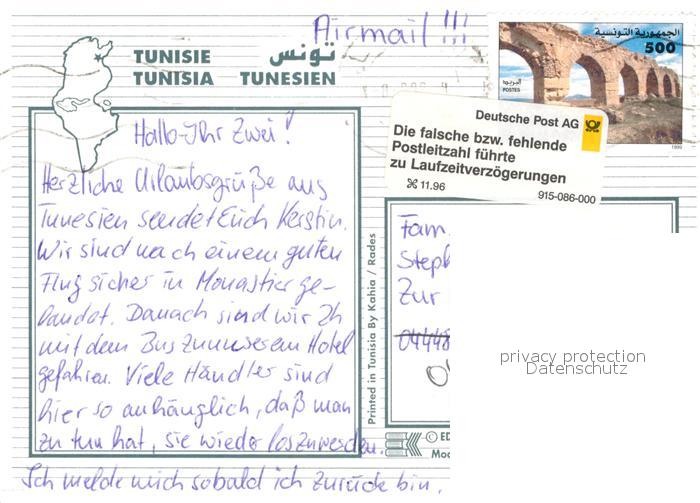 Airmail !!!
TUNISIE تونس
TUNISIA TUNESIEN
الجمهورية التونسية
500
البريد
POSTES
1999
Deutsche Post AG
Die falsche bzw. fehlende
Postleitzahl führte
zu Laufzeitverzögerungen
11.96 915-086-000
Hallo Ihr Zwei!
Herzliche Urlaubsgrüße aus
Tunesien sendet Euch Kerstin.
Wir sind nach einem guten
Flug sicher in Monastier ge-
landet. Danach sind wir 2h
mit dem Bus zu unserem Hotel
gefahren. Viele Händler sind
hier so anhänglich, daß man
zu tun hat, sie wieder loszuwerden.
Ich melde mich sobald ich zurück bin.
Printed in Tunisia By Kahia / Rades
Fam.
Steph
Zur
04448
© ED
Mod
privacy protection
Datenschutz